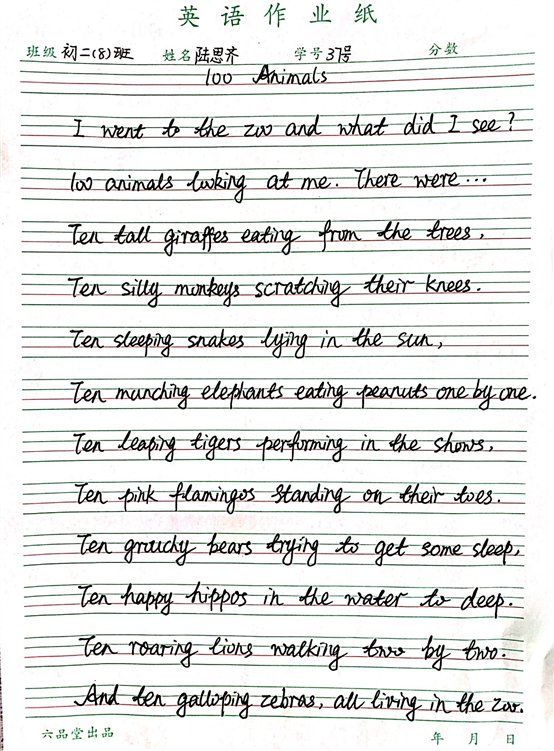 英语作业纸
班级 初二(8)班 姓名 陆思齐 学号 37号 分数
100 Animals
I went to the zoo and what did I see?
100 animals looking at me. There were...
Ten tall giraffes eating from the trees,
Ten silly monkeys scratching their knees.
Ten sleeping snakes lying in the sun,
Ten munching elephants eating peanuts one by one.
Ten leaping tigers performing in the shows,
Ten pink flamingos standing on their toes.
Ten grouchy bears trying to get some sleep,
Ten happy hippos in the water to deep.
Ten roaring lions walking two by two.
And ten galloping zebras, all living in the zoo.
六品堂出品 年 月 日